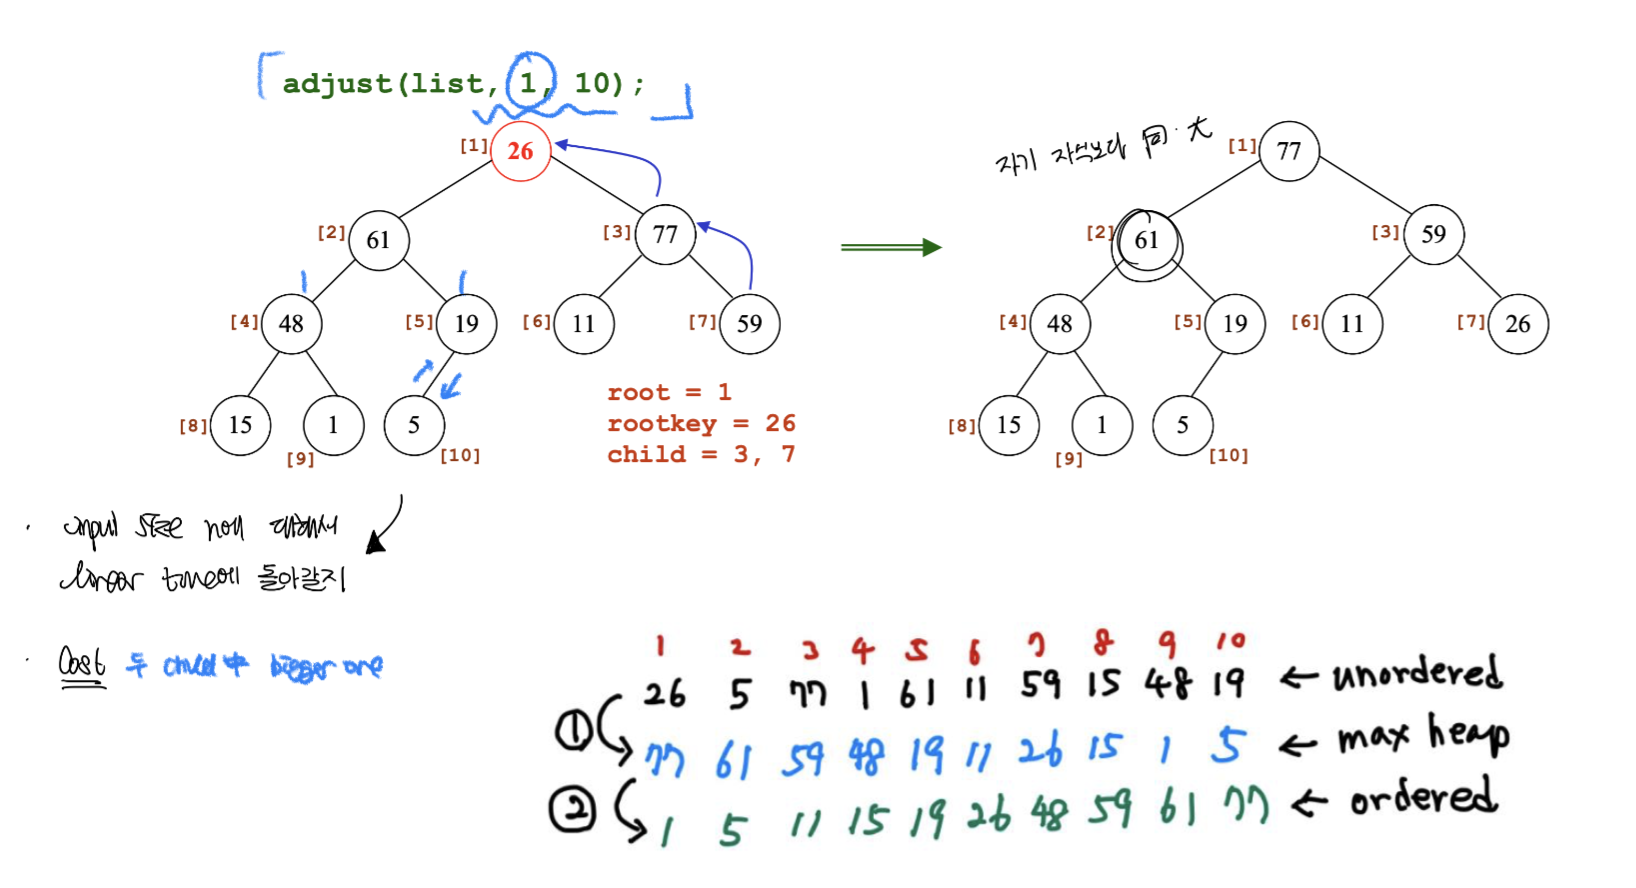 adjust(list, 1, 10);
[1] 26
[2] 61 [3] 77
[4] 48 [5] 19 [6] 11 [7] 59
[8] 15 [9] 1 [10] 5
root = 1
rootkey = 26
child = 3, 7
자기 자식보다 同·大
[1] 77
[2] 61 [3] 59
[4] 48 [5] 19 [6] 11 [7] 26
[8] 15 [9] 1 [10] 5
· input size n에 대해서
linear time에 돌아갈지
· Cost 두 child 中 bigger one
1 2 3 4 5 6 7 8 9 10
26 5 77 1 61 11 59 15 48 19 ← unordered
① 77 61 59 48 19 11 26 15 1 5 ← max heap
② 1 5 11 15 19 26 48 59 61 77 ← ordered